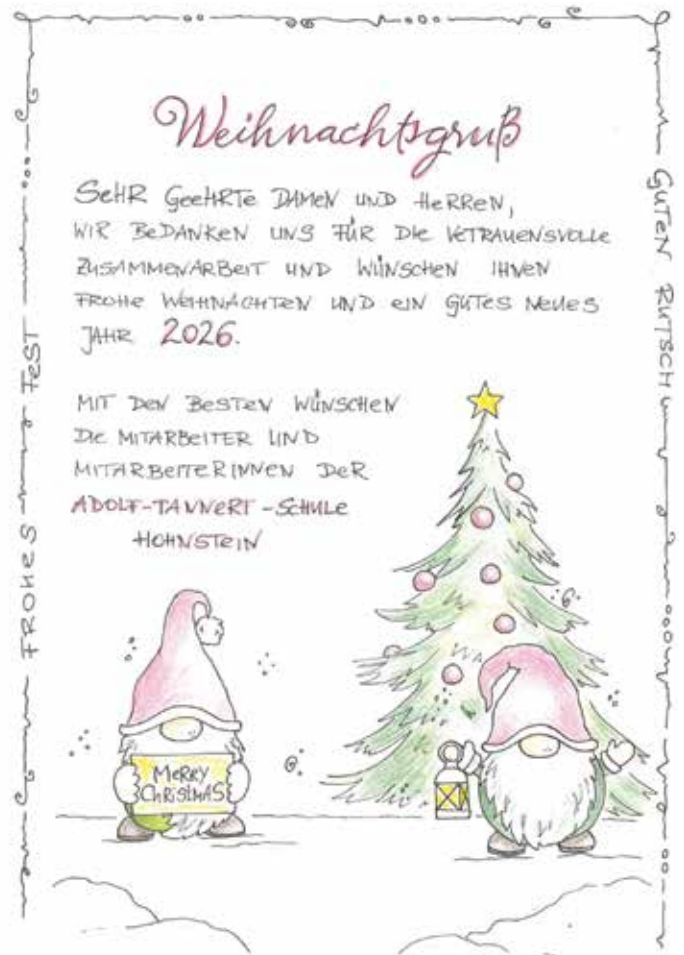 Weihnachtsgruß
SEHR GEEHRTE DAMEN UND HERREN,
WIR BEDANKEN UNS FÜR DIE VETRAUENSVOLLE
ZUSAMMENARBEIT UND WÜNSCHEN IHNEN
FROHE WEIHNACHTEN UND EIN GUTES NEUES
JAHR 2026.
MIT DEN BESTEN WÜNSCHEN
DIE MITARBEITER UND
MITARBEITERINNEN DER
ADOLF-TANNERT-SCHULE
HOHNSTEIN
MERRY
CHRISTMAS
FROHES FEST
GUTEN RUTSCH